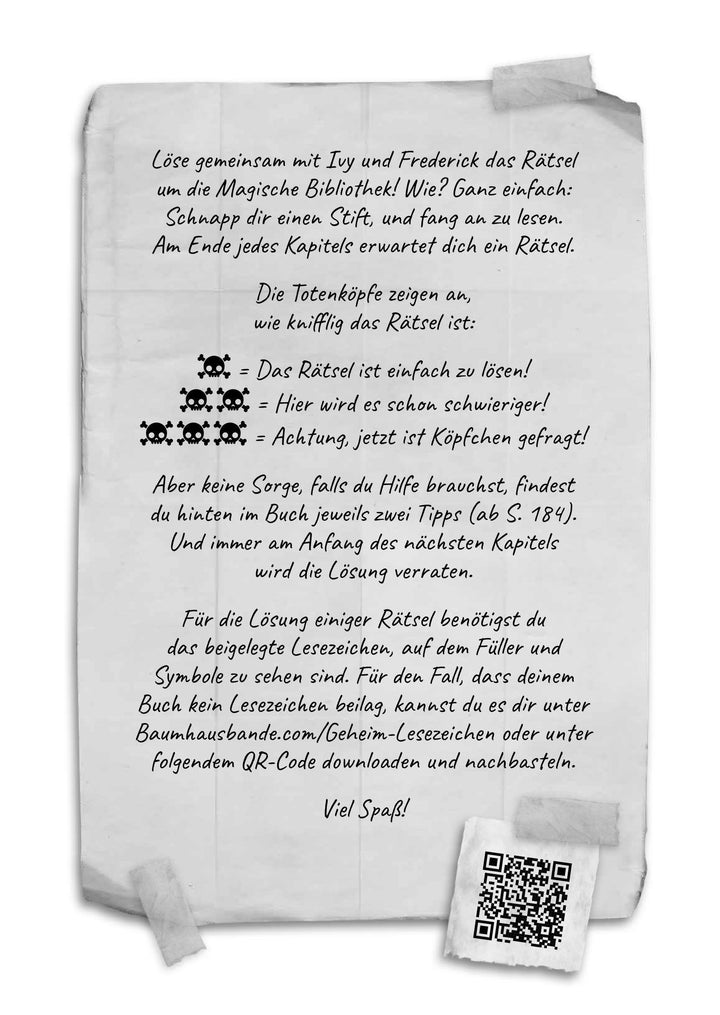 Löse gemeinsam mit Ivy und Frederick das Rätsel
um die Magische Bibliothek! Wie? Ganz einfach:
Schnapp dir einen Stift, und fang an zu lesen.
Am Ende jedes Kapitels erwartet dich ein Rätsel.
Die Totenköpfe zeigen an,
wie knifflig das Rätsel ist:
= Das Rätsel ist einfach zu lösen!
= Hier wird es schon schwieriger!
= Achtung, jetzt ist Köpfchen gefragt!
Aber keine Sorge, falls du Hilfe brauchst, findest
du hinten im Buch jeweils zwei Tipps (ab S. 184).
Und immer am Anfang des nächsten Kapitels
wird die Lösung verraten.
Für die Lösung einiger Rätsel benötigst du
das beigelegte Lesezeichen, auf dem Füller und
Symbole zu sehen sind. Für den Fall, dass deinem
Buch kein Lesezeichen beilag, kannst du es dir unter
Baumhausbande.com/Geheim-Lesezeichen oder unter
folgendem QR-Code downloaden und nachbasteln.
Viel Spaß!